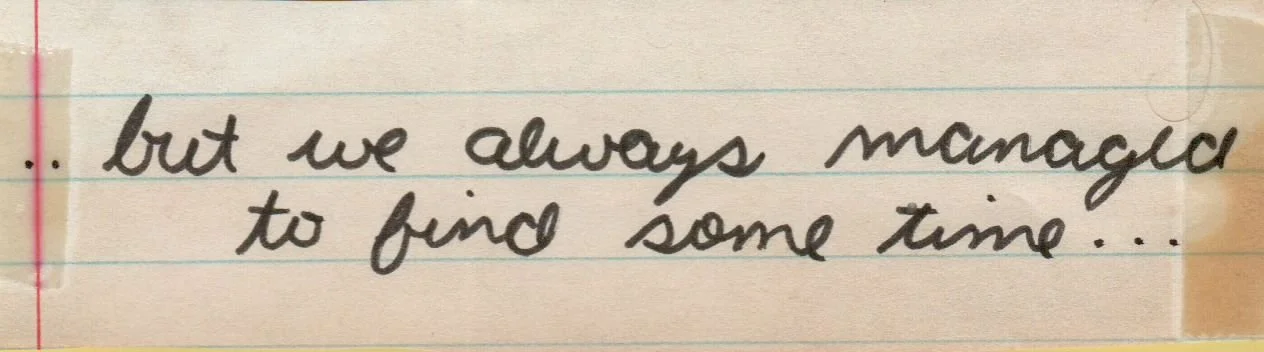 .. but we always managed
to find some time...